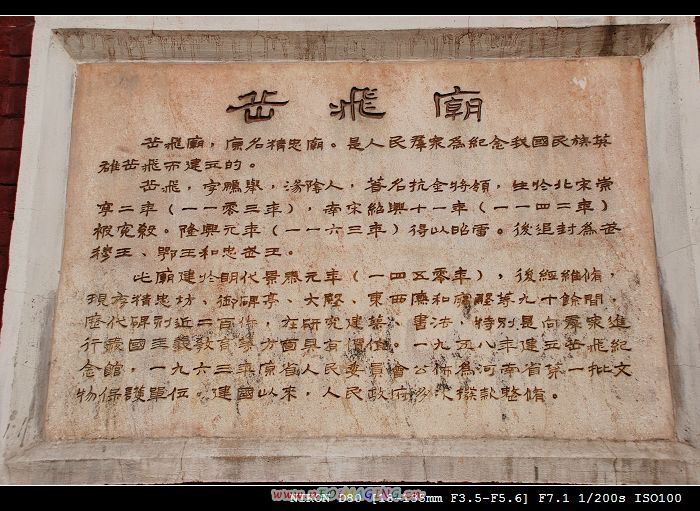 岳飛廟
岳飛廟，原名精忠廟。是人民羣衆為紀念我國民族英
雄岳飛而建立的。
岳飛，字鵬舉，湯陰人，著名抗金将領，生於北宋崇
寧二年（一一零三年），南宋紹興十一年（一一四二年）
被冤殺。隆興元年（一一六三年）得以昭雪。後追封為武
穆王、鄂王和忠武王。
此廟建於明代景泰元年（一四五零年），後經維修，
現存精忠坊、御碑亭、大殿、東西廡和廟殿等九十餘間，
歷代碑刻近二百件，在研究建築、書法，特別是向羣衆進
行愛國主義教育等方面具有價值。一九五八年建立岳飛紀
念館，一九六三年原省人民委員會公佈為河南省第一批文
物保護單位。建國以來，人民政府多次撥款整修。
NIKON D80 [18-135mm F3.5-F5.6] F7.1 1/200s ISO100